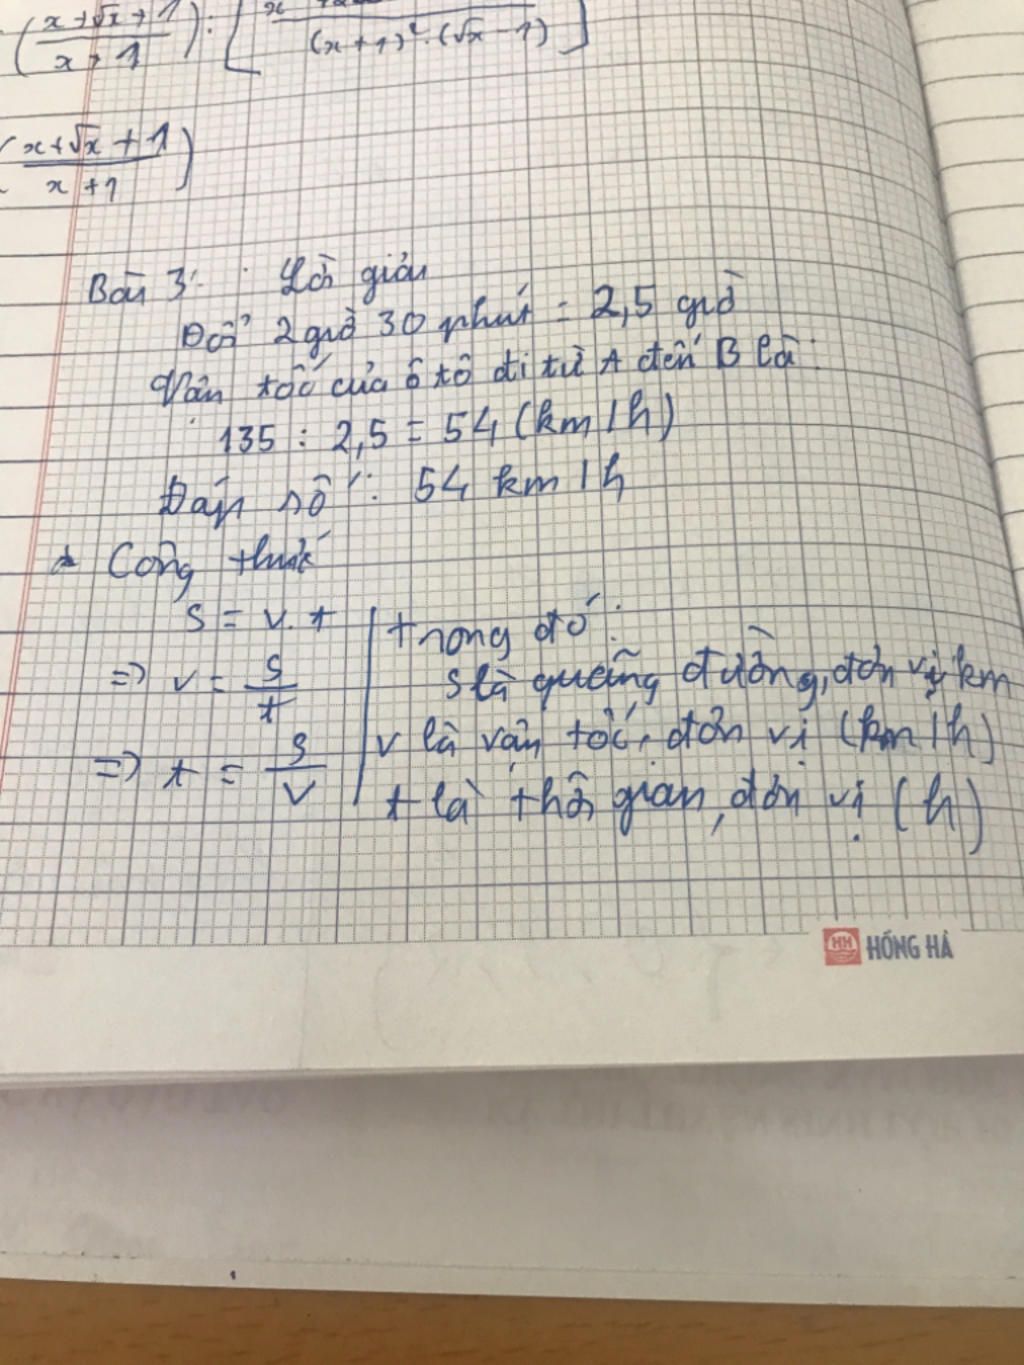 (x+√x+1 / x+1) : [ / (x+1)² . (√x-1)]
(x+√x+1 / x+1)
Bài 3: Lời giải
Đổi 2 giờ 30 phút = 2,5 giờ
Vận tốc của ô tô đi từ A đến B là:
135 : 2,5 = 54 (km/h)
Đáp số: 54 km/h
Công thức
s = v.t
=> v = s/t
=> t = s/v
trong đó:
s là quãng đường, đơn vị km
v là vận tốc, đơn vị (km/h)
t là thời gian, đơn vị (h)
HH HỒNG HÀ